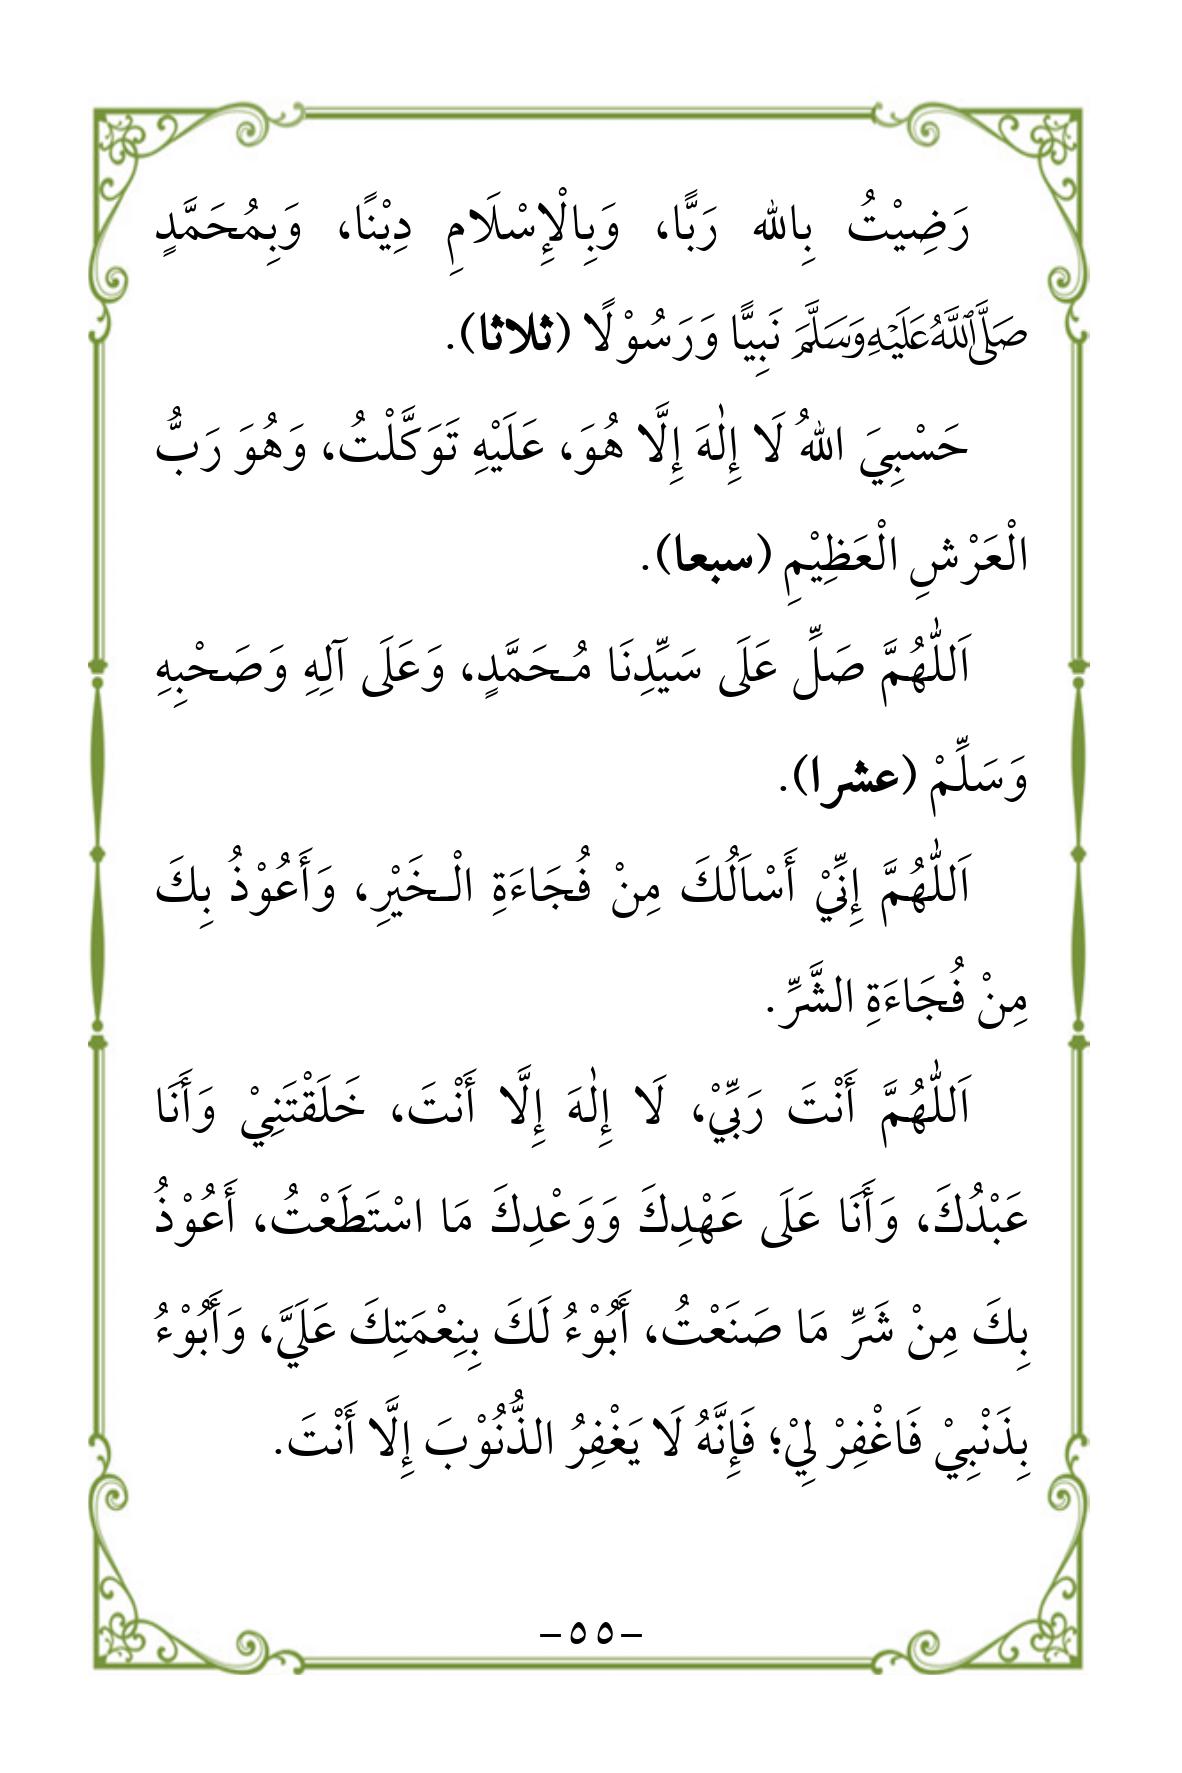 رَضِيْتُ بِالله رَبًّا، وَبِالْإِسْلَامِ دِيْنًا، وَبِمُحَمَّدٍ
صَلَّى اللَّهُ عَلَيْهِ وَسَلَّمَ نَبِيًّا وَرَسُوْلًا (ثلاثا).
حَسْبِيَ اللهُ لَا إِلٰهَ إِلَّا هُوَ، عَلَيْهِ تَوَكَّلْتُ، وَهُوَ رَبُّ
الْعَرْشِ الْعَظِيْمِ (سبعا).
اَللّٰهُمَّ صَلِّ عَلَى سَيِّدِنَا مُـحَمَّدٍ، وَعَلَى آلِهِ وَصَحْبِهِ
وَسَلِّمْ (عشرا).
اَللّٰهُمَّ إِنِّيْ أَسْاَلُكَ مِنْ فُجَاءَةِ الْـخَيْرِ، وَأَعُوْذُ بِكَ
مِنْ فُجَاءَةِ الشَّرِّ.
اَللّٰهُمَّ أَنْتَ رَبِّيْ، لَا إِلٰهَ إِلَّا أَنْتَ، خَلَقْتَنِيْ وَأَنَا
عَبْدُكَ، وَأَنَا عَلَى عَهْدِكَ وَوَعْدِكَ مَا اسْتَطَعْتُ، أَعُوْذُ
بِكَ مِنْ شَرِّ مَا صَنَعْتُ، أَبُوْءُ لَكَ بِنِعْمَتِكَ عَلَيَّ، وَأَبُوْءُ
بِذَنْبِيْ فَاغْفِرْ لِيْ؛ فَإِنَّهُ لَا يَغْفِرُ الذُّنُوْبَ إِلَّا أَنْتَ.
–٥٥–